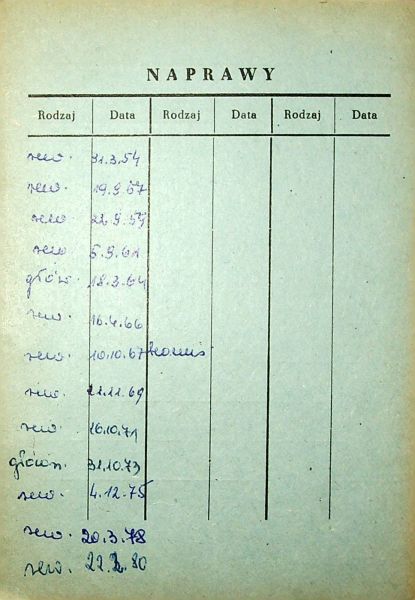 NAPRAWY
Rodzaj Data Rodzaj Data Rodzaj Data
rew. 31.3.54
rew. 19.9.57
rew. 22.9.59
rew. 5.9.61
głów. 18.3.64
rew. 16.4.66
rew. 10.10.67
rew. 21.11.69
rew. 16.10.71
głów. 31.10.73
rew. 4.12.75
rew. 20.3.78
rew. 22.2.80